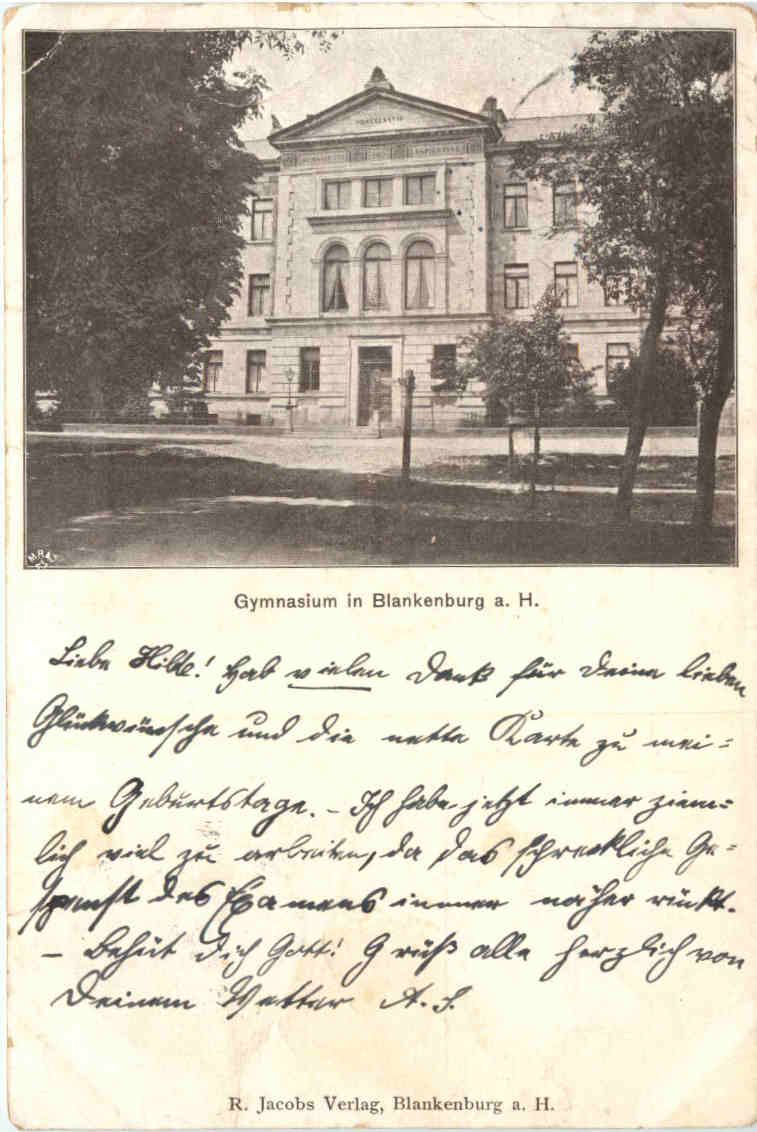 Gymnasium in Blankenburg a. H.
Liebe Hilde! Hab vielen Dank für Deine lieben
Glückwünsche und die nette Karte zu mei=
nem Geburtstage. – Ich habe jetzt immer ziem=
lich viel zu arbeiten, da das schreckliche Ge=
spenst des Examens immer näher rückt.
– Behüt Dich Gott! Grüß alle herzlich von
Deinem Vetter A. S.
R. Jacobs Verlag, Blankenburg a. H.